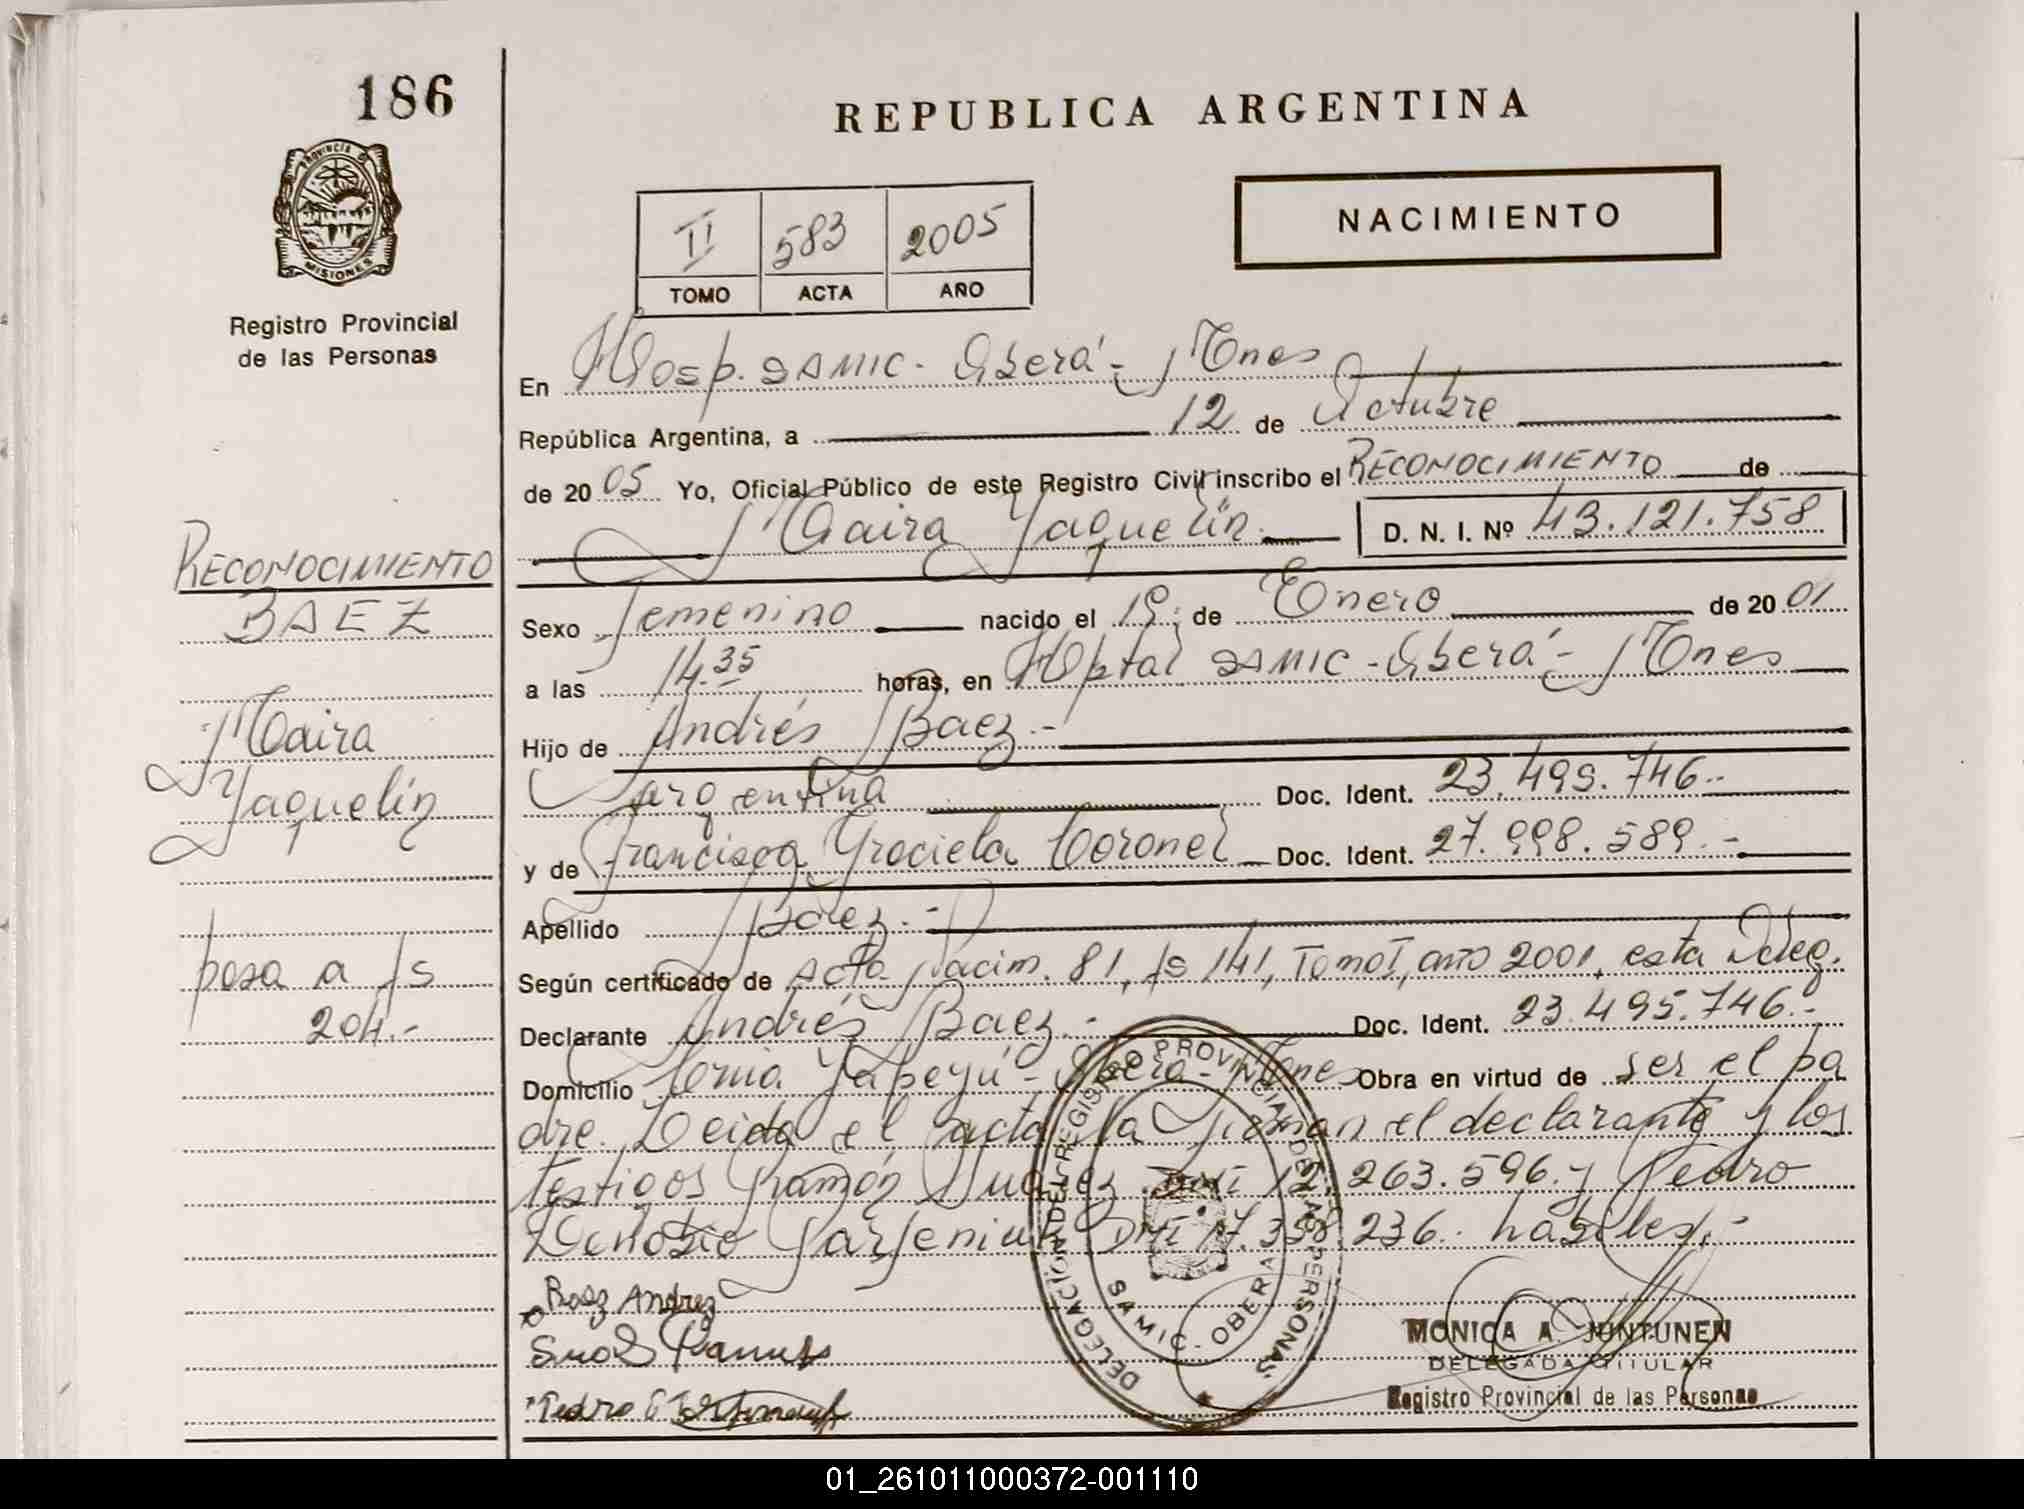 186
REPUBLICA ARGENTINA
PROVINCIA DE
MISIONES
II 583 2005
TOMO ACTA AÑO
NACIMIENTO
Registro Provincial
de las Personas
En Hosp. SAMIC - Oberá - Mnes
República Argentina, a 12 de Octubre
de 20 05 Yo, Oficial Público de este Registro Civil inscribo el RECONOCIMIENTO de
Maira Yaquelín D. N. I. Nº 43.121.758
RECONOCIMIENTO
BAEZ
Maira
Yaquelín
pasa a fs
204.-
Sexo Femenino nacido el 19 de Enero de 20 01
a las 14.35 horas, en Hptal SAMIC - Oberá - Mnes
Hijo de Andrés Baez.-
Argentina Doc. Ident. 23.495.746.-
y de Francisca Graciela Coronel Doc. Ident. 27.998.589.-
Apellido Baez.-
Según certificado de Acta Nacim. 81, fs 141, Tomo I, año 2001, esta Deleg.
Declarante Andrés Baez.- Doc. Ident. 23.495.746.-
Domicilio Colonia Yapeyú - Oberá - Mnes Obra en virtud de ser el pa
dre. Leida el acta la firman el declarante y los
testigos Ramón Suarez DNI 12.263.596 y Pedro
DNI 17.358.236. habiles.-
Baez Andrez
Pedro
DELEGACION DEL REGISTRO PROVINCIAL DE LAS PERSONAS
SAMIC - OBERA
MONICA A. JUNTUNEN
DELEGADA TITULAR
Registro Provincial de las Personas
01_261011000372-001110